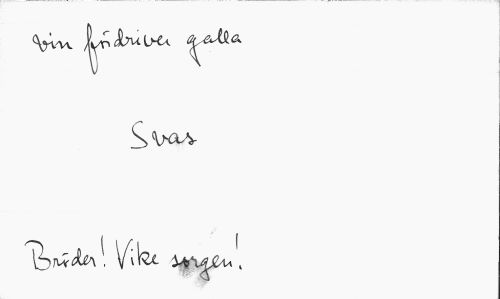 vin fördriver galla
Svas
Bröder! Vike sorgen!